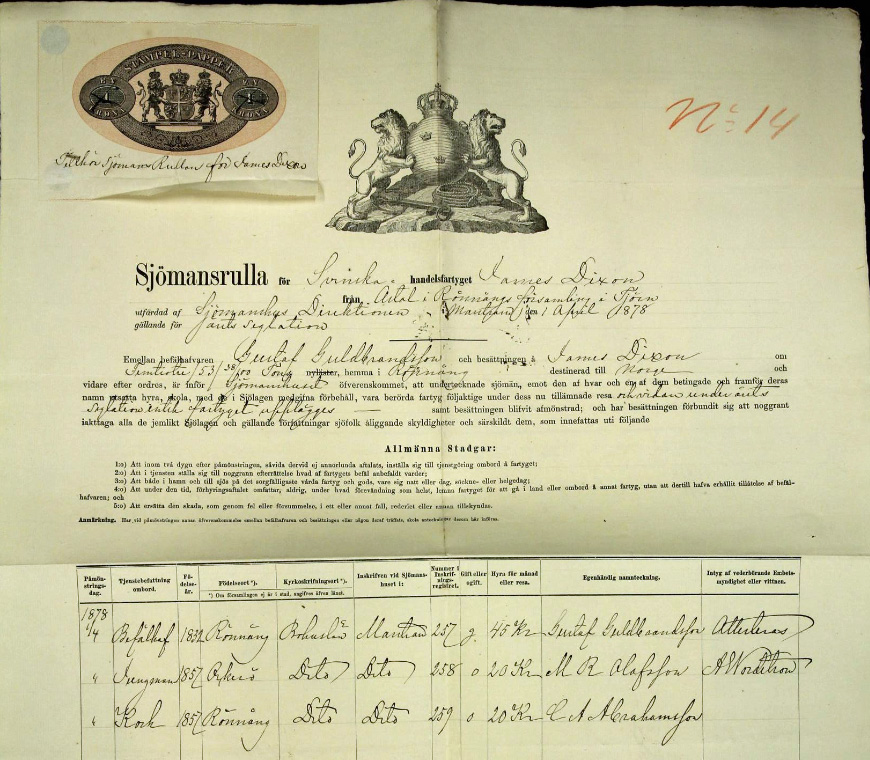 STÄMPEL-PAPPER
EN 1 KRONA
EN 1 KRONA
Tillhör Sjömans Rullan för James Dixon
No 14
Sjömansrulla för Svenska handelsfartyget James Dixon
från Astol i Rönnängs församling å Tjörn
utfärdad af Sjömanshus Direktionen i Marstrand den 1 April 1878
gällande för årets seglation
Emellan befälhafvaren Gustaf Guldbrandsson och besättningen å James Dixon om
53 38/100 Tons nyläster, hemma i Rönnäng destinerad till Norge och
vidare efter ordres, är inför Sjömanshuset öfverenskommet, att undertecknade sjömän, emot den af hvar och en af dem betingade och framför deras
namn utsatta hyra, skola, med de i Sjölagen medgifna förbehåll, vara berörda fartyg följaktige under dess nu tillämnade resa och sedan under årets
seglation intill fartyget upplägges samt besättningen blifvit afmönstrad; och har besättningen förbundit sig att noggrant
iakttaga alla de jemlikt Sjölagen och gällande författningar sjöfolk åliggande skyldigheter och särskildt dem, som innefattas uti följande
Allmänna Stadgar:
1:o) Att inom två dygn efter påmönstringen, såvida dervid ej annorlunda aftalats, inställa sig till tjenstgöring ombord å fartyget;
2:o) Att i tjensten ställa sig till noggrann efterrättelse hvad af fartygets befäl anbefaldt varder;
3:o) Att både i hamn och till sjös på det sorgfälligaste vårda fartyg och gods, vare sig natt eller dag, söckne- eller helgedag;
4:o) Att under den tid, förhyringsaftalet omfattar, aldrig, under hvad förevändning som helst, lemna fartyget för att gå i land eller ombord å annat fartyg, utan att dertill hafva erhållit tillåtelse af befäl-
hafvaren; och
5:o) Att ersätta den skada, som genom fel eller försummelse, i ett eller annat fall, rederiet eller annan tillskyndas.
Anmärkning. Har vid påmönstringen annan öfverenskommelse emellan befälhafvaren och besättningen eller någon deraf träffats, skola antecknas dessan här införas.
Påmön-strings-dag. Tjenstebefattning ombord. Fö-delse-år. Födelseort *). Kyrkoskrifningsort *). Inskrifven vid Sjömans-huset i: Nummer i Inskrif-nings-registret. Gift eller ogift. Hyra för månad eller resa. Egenhändig namnteckning. Intyg af vederbörande Embets-myndighet eller vittnen.
*) Om församlingen ej är i stad, angifves äfven länet.
1878
1/4 Befälhaf 1832 Rönnäng Bohuslän Marstrand 257 g. 45 Kr Gustaf Guldbrandsson Attesteras
" Jungman 1857 Dito Dito 258 o 20 Kr M R Olafsson A Nordström
" Kock 1857 Rönnäng Dito Dito 259 o 20 Kr C A Abrahamsson